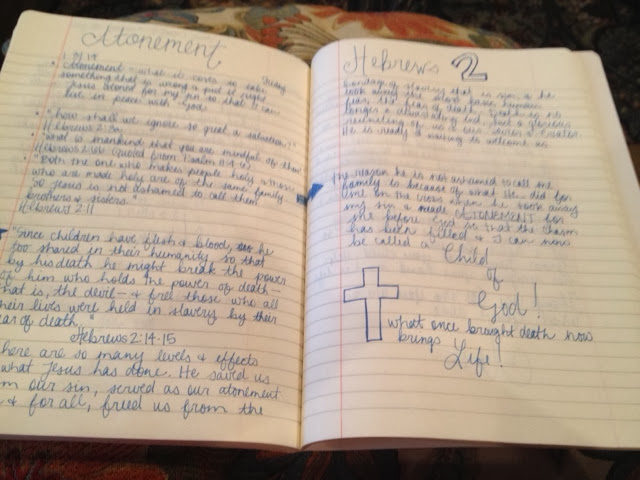 Atonement
1/9/14
Friday
• Atonement - what it costs to take
something that is wrong & put it right
Jesus atoned for my sin so that I can
live in peace with God.
• "how shall we ignore so great a salvation?"
Hebrews 2:3a
• "what is mankind that you are mindful of them"
Hebrews 2:6b (quoted from Psalm
• "Both the one who makes people holy & those
who are made holy are of the same family
So Jesus is not ashamed to call them
brothers & sisters."
Hebrews 2:11
"Since children have flesh & blood, he
too shared in their humanity so that
by his death he might break the power
of him who holds the power of death—
that is, the devil— & free those who all
their lives were held in slavery by their
fear of death."
Hebrews 2:14-15
here are so many levels & effects
what Jesus has done. He saved us
m our sin, served as our atonement
& for all, freed us from the
Hebrews 2
bondage of slavery that is sin, & he
took away the most basic human
fear, the fear of death. Death is no
longer a devastating end, but a glorious
of us & our &
He is ready & waiting to welcome us
The reason he is not ashamed to call me
family is because of what He did for
me on the cross when he took away
my sin & made ATONEMENT for
me before God so that the chasm
has been filled & I can now
be called a
Child
of
God!
what once brought death now
brings
Life!